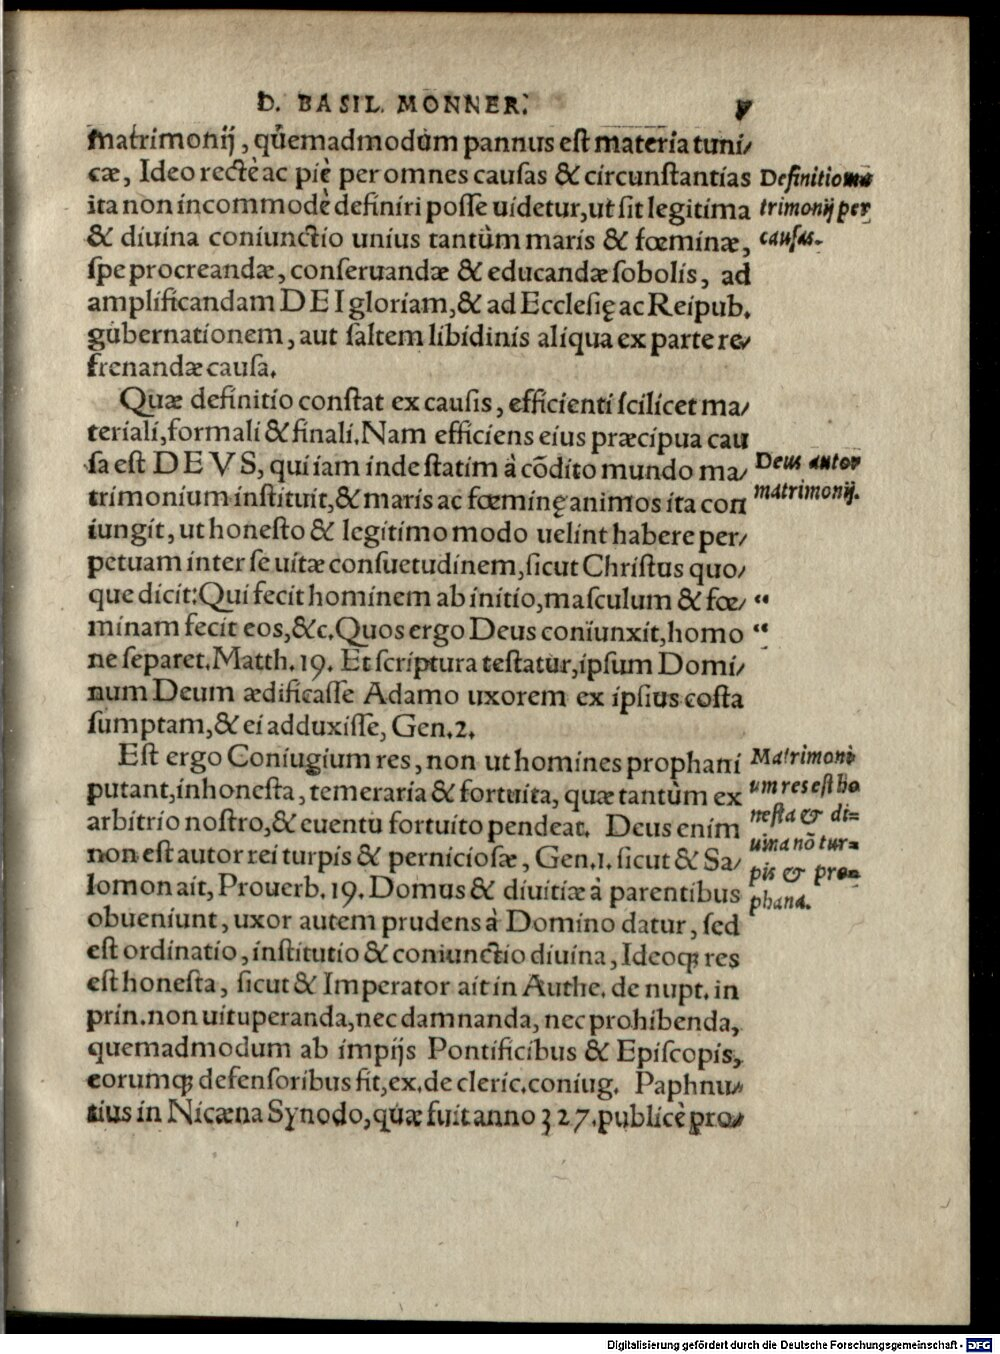 D. BASIL. MONNER.
matrimonij, quemadmodum pannus est materia tuni/
cæ, Ideo rectè ac piè per omnes causas & circunstantias
Definitio ma
ita non incommodè definiri posse uidetur, ut sit legitima
trimonij per
& diuina coniunctio unius tantùm maris & fœminæ,
causas.
spe procreandæ, conseruandæ & educandæ sobolis, ad
amplificandam DEI gloriam, & ad Ecclesię ac Reipub.
gubernationem, aut saltem libidinis aliqua ex parte re/
frenandæ causa.
Quæ definitio constat ex causis, efficienti scilicet ma/
teriali, formali & finali. Nam efficiens eius præcipua cau
sa est DEVS, qui iam inde statim à cōdito mundo ma/
Deus autor
trimonium instituit, & maris ac fœminę animos ita con
matrimonij.
iungit, ut honesto & legitimo modo uelint habere per/
petuam inter se uitæ consuetudinem, sicut Christus quo/
que dicit: Qui fecit hominem ab initio, masculum & fœ/ “
minam fecit eos, &c. Quos ergo Deus coniunxit, homo “
ne separet. Matth. 19. Et scriptura testatur, ipsum Domi/
num Deum ædificasse Adamo uxorem ex ipsius costa
sumptam, & ei adduxisse, Gen. 2.
Est ergo Coniugium res, non ut homines prophani
Matrimoni
putant, inhonesta, temeraria & fortuita, quæ tantùm ex
um res est ho
arbitrio nostro, & euentu fortuito pendeat. Deus enim
nesta & di=
non est autor rei turpis & perniciosæ, Gen. 1. sicut & Sa/
uina nō tur=
lomon ait, Prouerb. 19. Domus & diuitiæ à parentibus
pis & pro=
obueniunt, uxor autem prudens à Domino datur, sed
phana.
est ordinatio, institutio & coniunctio diuina, Ideoq; res
est honesta, sicut & Imperator ait in Authe. de nupt. in
prin. non uituperanda, nec damnanda, nec prohibenda,
quemadmodum ab impijs Pontificibus & Episcopis,
eorumq; defensoribus fit, ex. de cleric. coniug. Paphnu/
tius in Nicæna Synodo, quæ fuit anno 327. publicè pro/
Digitalisierung gefördert durch die Deutsche Forschungsgemeinschaft - DFG